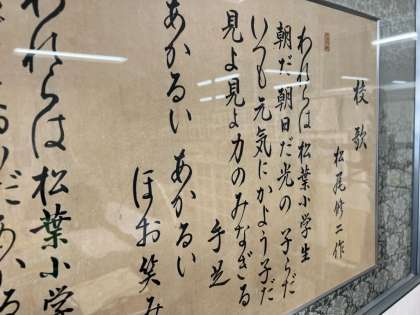 校歌
松尾修二作
われらは松葉小学生
朝だ朝日だ光の子らだ
いつも元気にかよう子だ
見よ見よ力のみなぎる
手足
あかるい あかるい
ほお笑み
われらは松葉小学